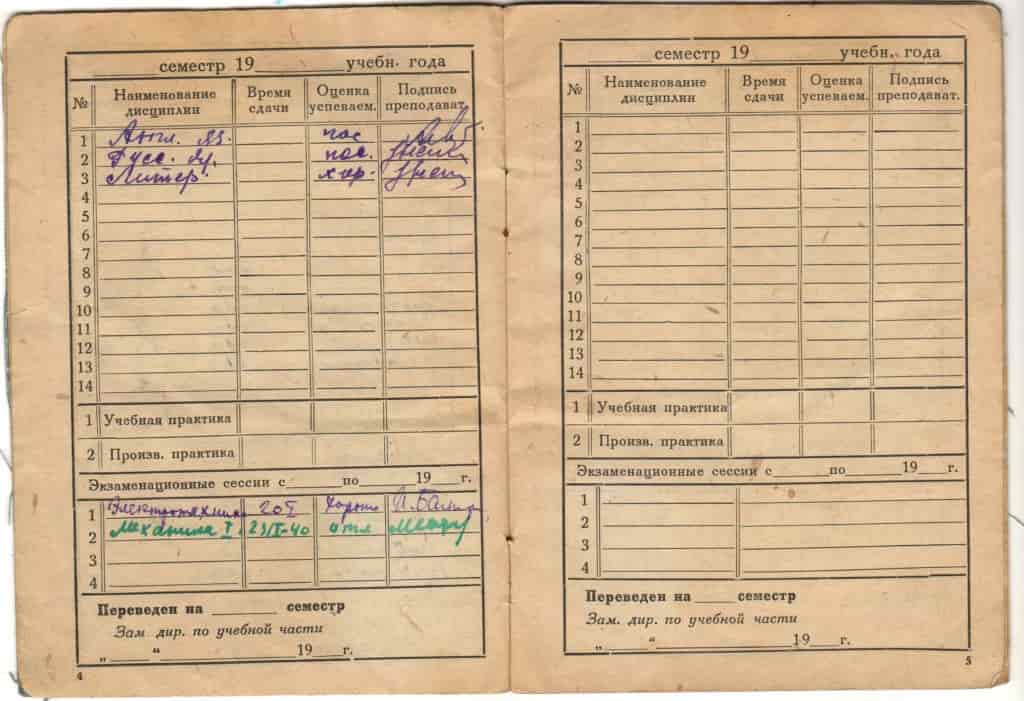 семестр 19 учебн. года
№ Наименование дисциплин Время сдачи Оценка успеваем. Подпись преподават.
1 Англ. яз. пос
2 Русс. яз. пос.
3 Литер. хор.
4
5
6
7
8
9
10
11
12
13
14
1 Учебная практика
2 Произв. практика
Экзаменационные сессии с по 19 г.
1 Электротехника 20 I хорошо
2 Механика I. 23/I-40 отл
3
4
Переведен на семестр
Зам. дир. по учебной части
„ “ 19 г.
4
семестр 19 учебн. года
№ Наименование дисциплин Время сдачи Оценка успеваем. Подпись преподават.
1
2
3
4
5
6
7
8
9
10
11
12
13
14
1 Учебная практика
2 Произв. практика
Экзаменационные сессии с по 19 г.
1
2
3
4
Переведен на семестр
Зам. дир. по учебной части
„ “ 19 г.
5